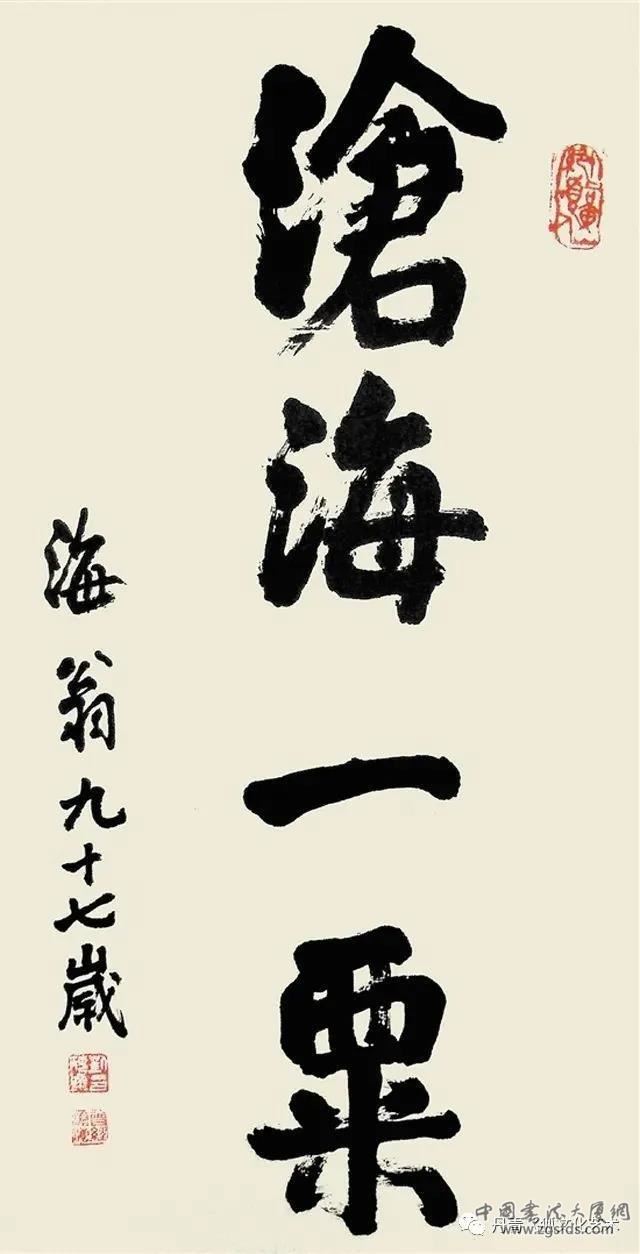 滄海一粟
海翁九十七歲
中國書法大厦網
www.zgsfds.com